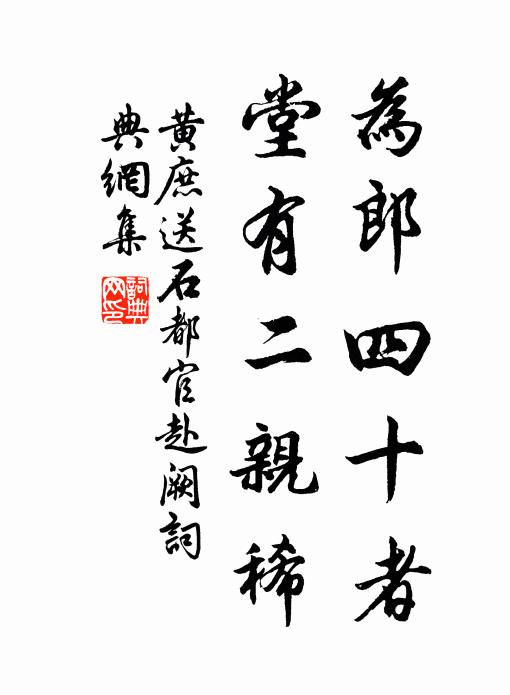 為郎四十者
堂有二親稀
黃庶送石都官赴闕詞
典網集
詞典
网印